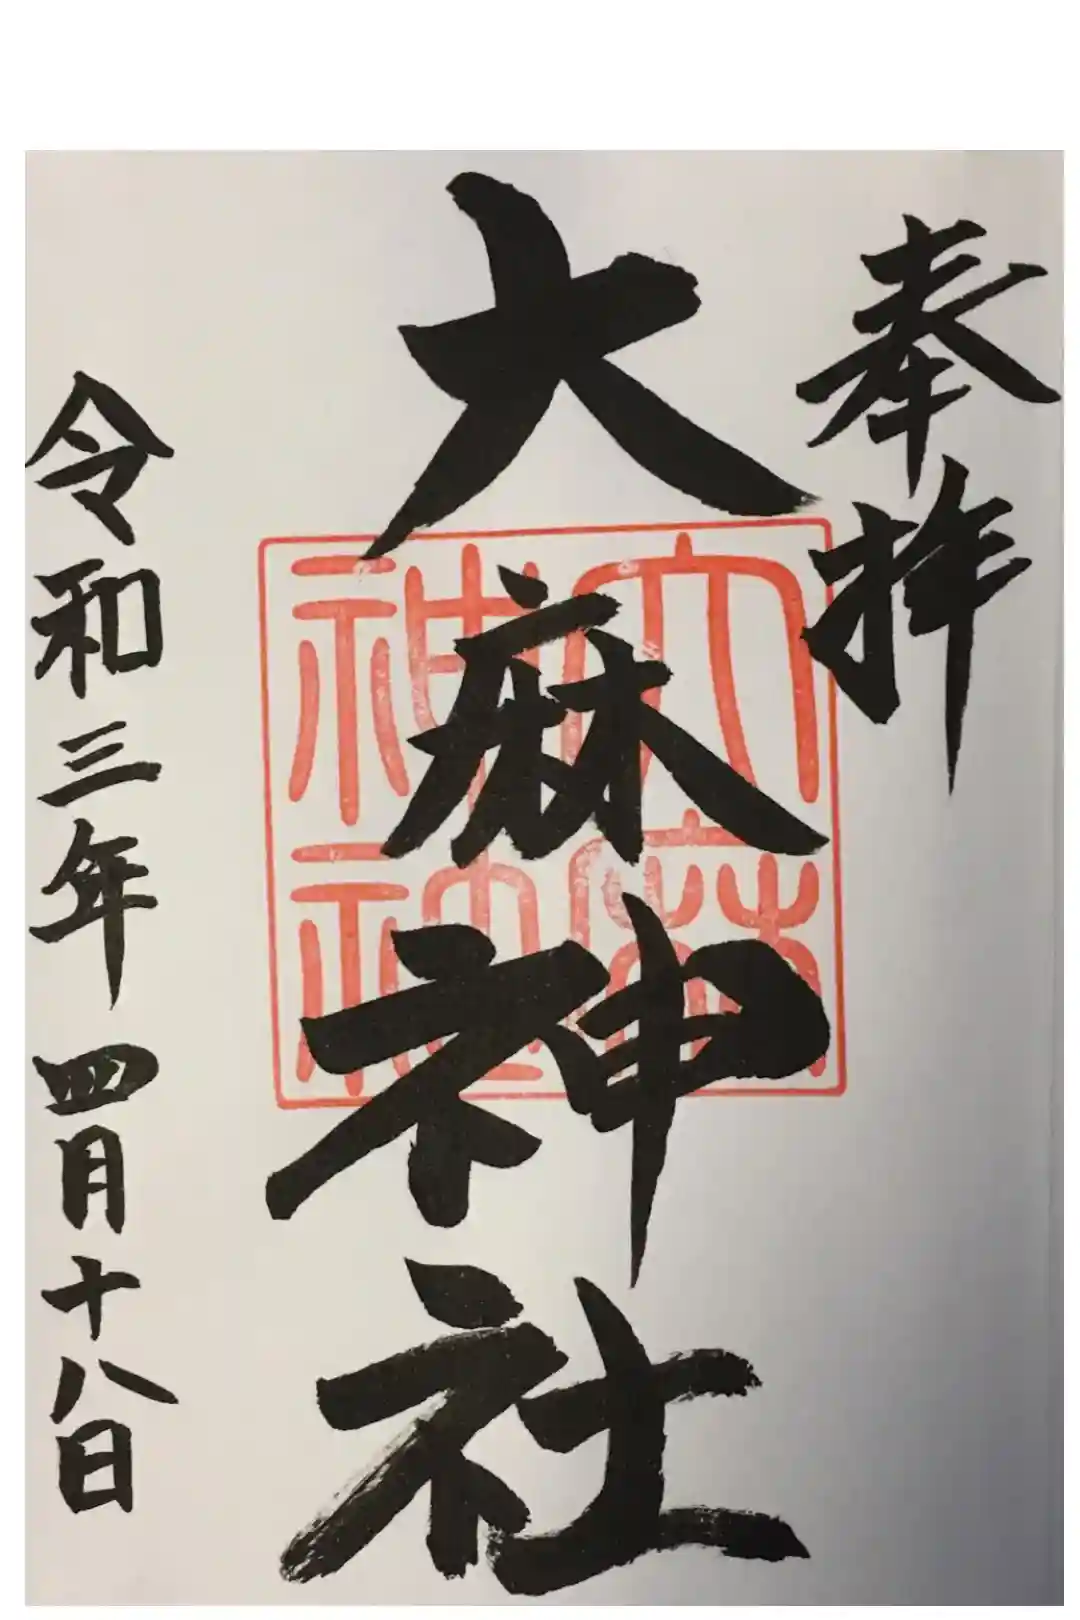 奉拝
大麻神社
令和三年四月十八日
大麻
神社